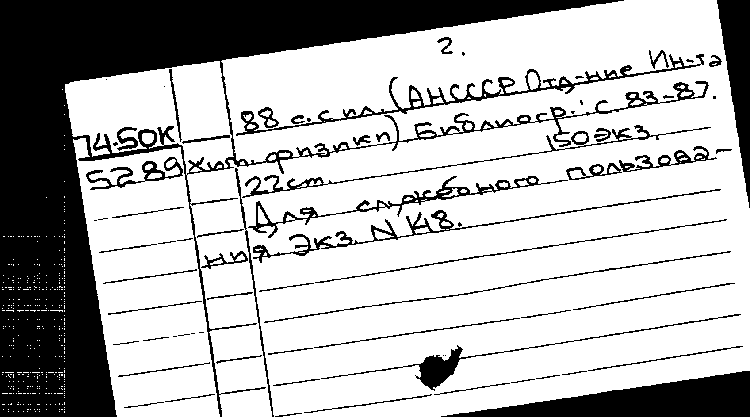 2.
88 с. с ил. (АНСССР Отд-ние Ин-та
74.50К
хим. физики) Библиогр.: с. 83-87.
5289
22cm. 150 экз.
Для служебного пользова-
ния. Экз. N К48.